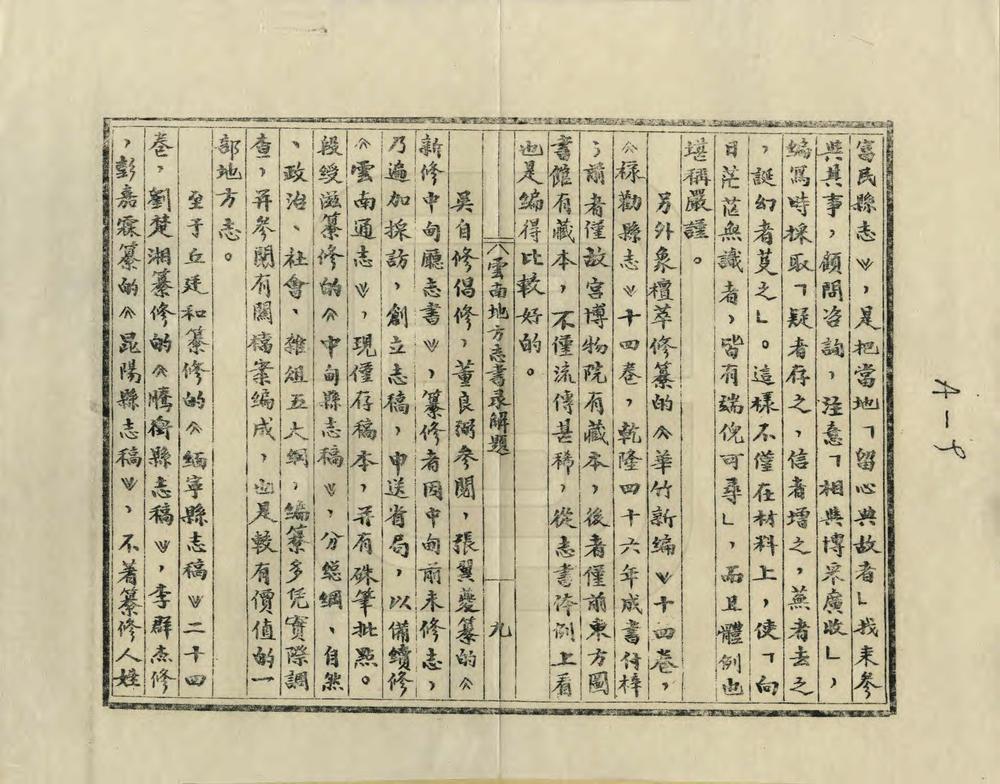 富民縣志》,是把當地「留心典故者」找来參
與其事,顧問咨詢,注意「相與博采廣收」,
編寫時採取「疑者存之,信者增之,蕪者去之
,誕幻者芟之」。這樣不僅在材料上,使「向
日茫茫無識者,皆有端倪可尋」,而且體例也
堪稱嚴謹。
另外象檀萃修纂的《華竹新編》十四卷,
《祿勸縣志》十四卷,乾隆四十六年成書付梓
;前者僅故宮博物院有藏本,後者僅前東方圖
書館有藏本,不僅流傳甚稀,從志書体例上看
也是編得比較好的。
《雲南地方志書录解題
九
吳自修倡修,董良弼參閱,張翼夔纂的《
新修中甸廳志書》,纂修者因中甸前未修志,
乃遍加採訪,創立志稿,申送省局,以備續修
《雲南通志》,現僅存稿本,并有硃筆批點。
段綬滋纂修的《中甸縣志稿》,分總綱、自然
、政治、社會、雜俎五大綱,編纂多凭實際調
查,并參閱有關檔案編成,也是較有價值的一
部地方志。
至于丘廷和纂修的《緬寧縣志稿》二十四
卷,劉楚湘纂修的《騰衝縣志稿》,李群杰修
,彭嘉霖纂的《昆陽縣志稿》,不著纂修人姓
4-9